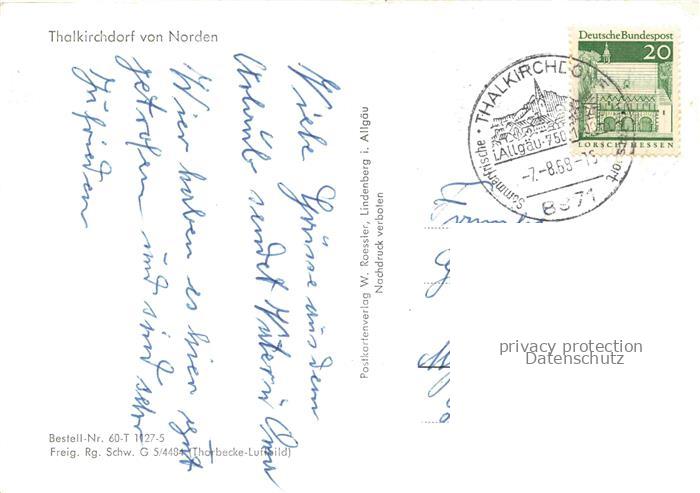 Thalkirchdorf von Norden
Viele Grüsse aus dem
Urlaub sendet
Wir haben es hier gut
getrofen und sind sehr
zufrieden
Postkartenverlag W. Roessler, Lindenberg i. Allgäu
Nachdruck verboten
Bestell-Nr. 60-T 1127-5
Freig. Rg. Schw. G 5/4484 (Thorbecke-Luftbild)
Deutsche Bundespost
20
LORSCH HESSEN
THALKIRCHDORF
i.Allgäu·750
-7.-8.68-15
Sommerfrische
8971
privacy protection
Datenschutz